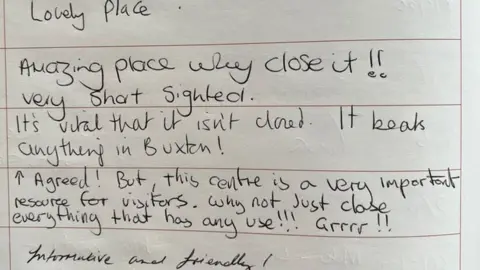 Lovely Place.
Amazing place why close it !!
very short sighted.
It's vital that it isn't closed. It beats
anything in Buxton!
↑ Agreed! But, this centre is a very important
resource for visitors. Why not just close
everything that has any use!!! Grrrr!!
Informative and friendly!